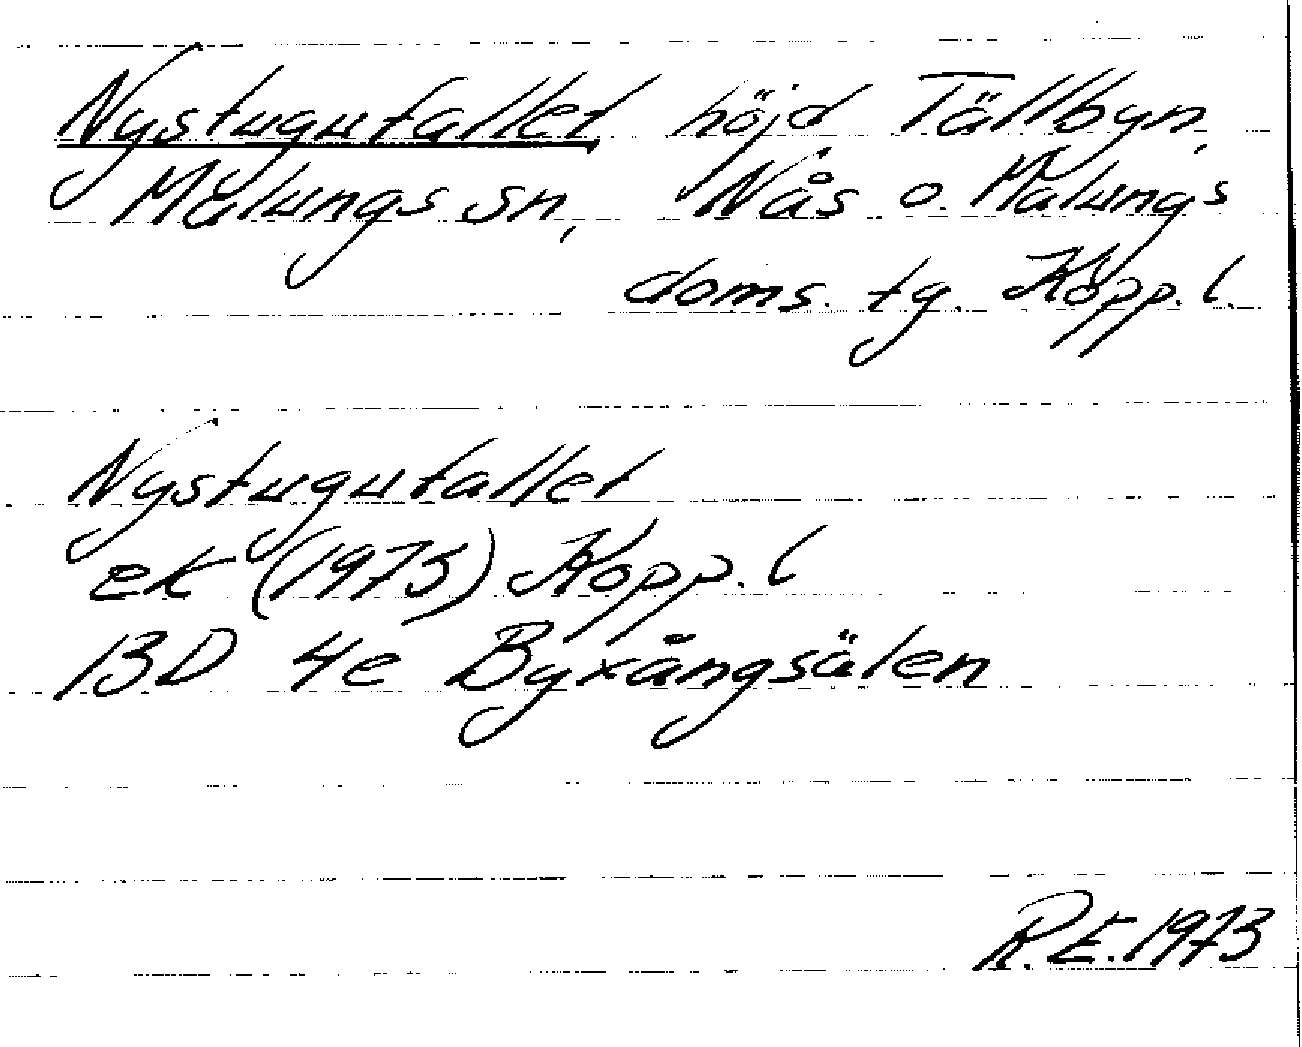 Nystugufallet höjd Tällbyn,
Malungs sn, Nås o. Malungs
doms. tg. Kopp. l.
Nystugufallet
ek (1973) Kopp. l
13D 4e Byxångsälen
R.E. 1973